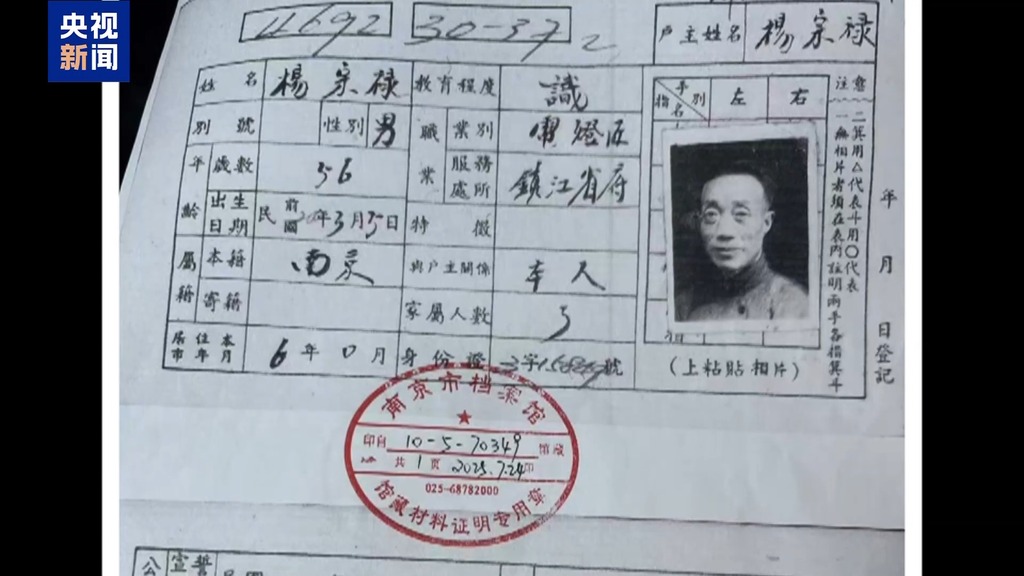 央视
新闻
11692 30-37 2
戶主姓名 楊宗禄
姓名 楊宗禄 教育程度 識
別號 性別 男 職業 業別
年齡 歲數 56 服務處所 鎮江省府
出生日期 民國前 年3月 日 特徵
屬籍 本籍 南京 與戶主關係 本人
寄籍 家屬人數
居住本市年月 6年0月 身份證 字 號
手別 指名 左 右
(上粘貼相片)
注意
一無相片者須在表內註明兩手各指箕斗
二箕用△代表斗用〇代表
年 月 日登記
南京市档案馆
印自 10-5-70349 馆藏
共1页 2025.7.24
025-68782000
馆藏材料证明专用章
公 宣誓